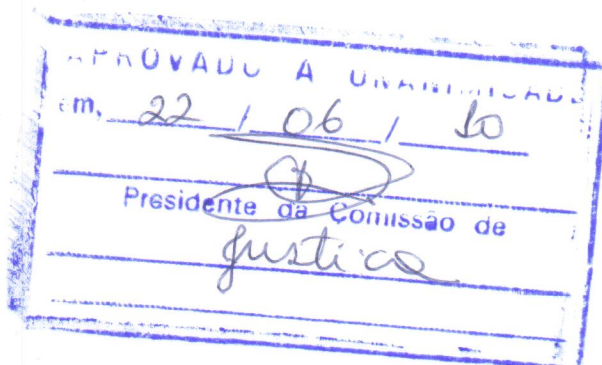 APROVADO A UNANIMIDADE
em, 22 / 06 / 10
Presidente da Comissão de
Justica